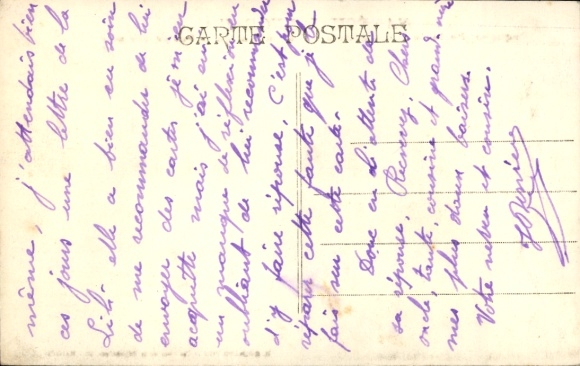 CARTE POSTALE
même, j'attendais bien
ces jours une lettre de la
Lili elle a bien eu soin
de me recommander de lui
envoyer des cartes je m'en
acquitte mais j'ai eu
un manque de réflexion en
oubliant de lui recommander
d'y faire réponse. C'est pour
réparer cette faute que je
fais sur cette carte.
Donc en attente de
sa réponse. Recevez, Cher
oncle, tante, cousine et grand mère
mes plus doux baisers.
Votre neveu et cousin.